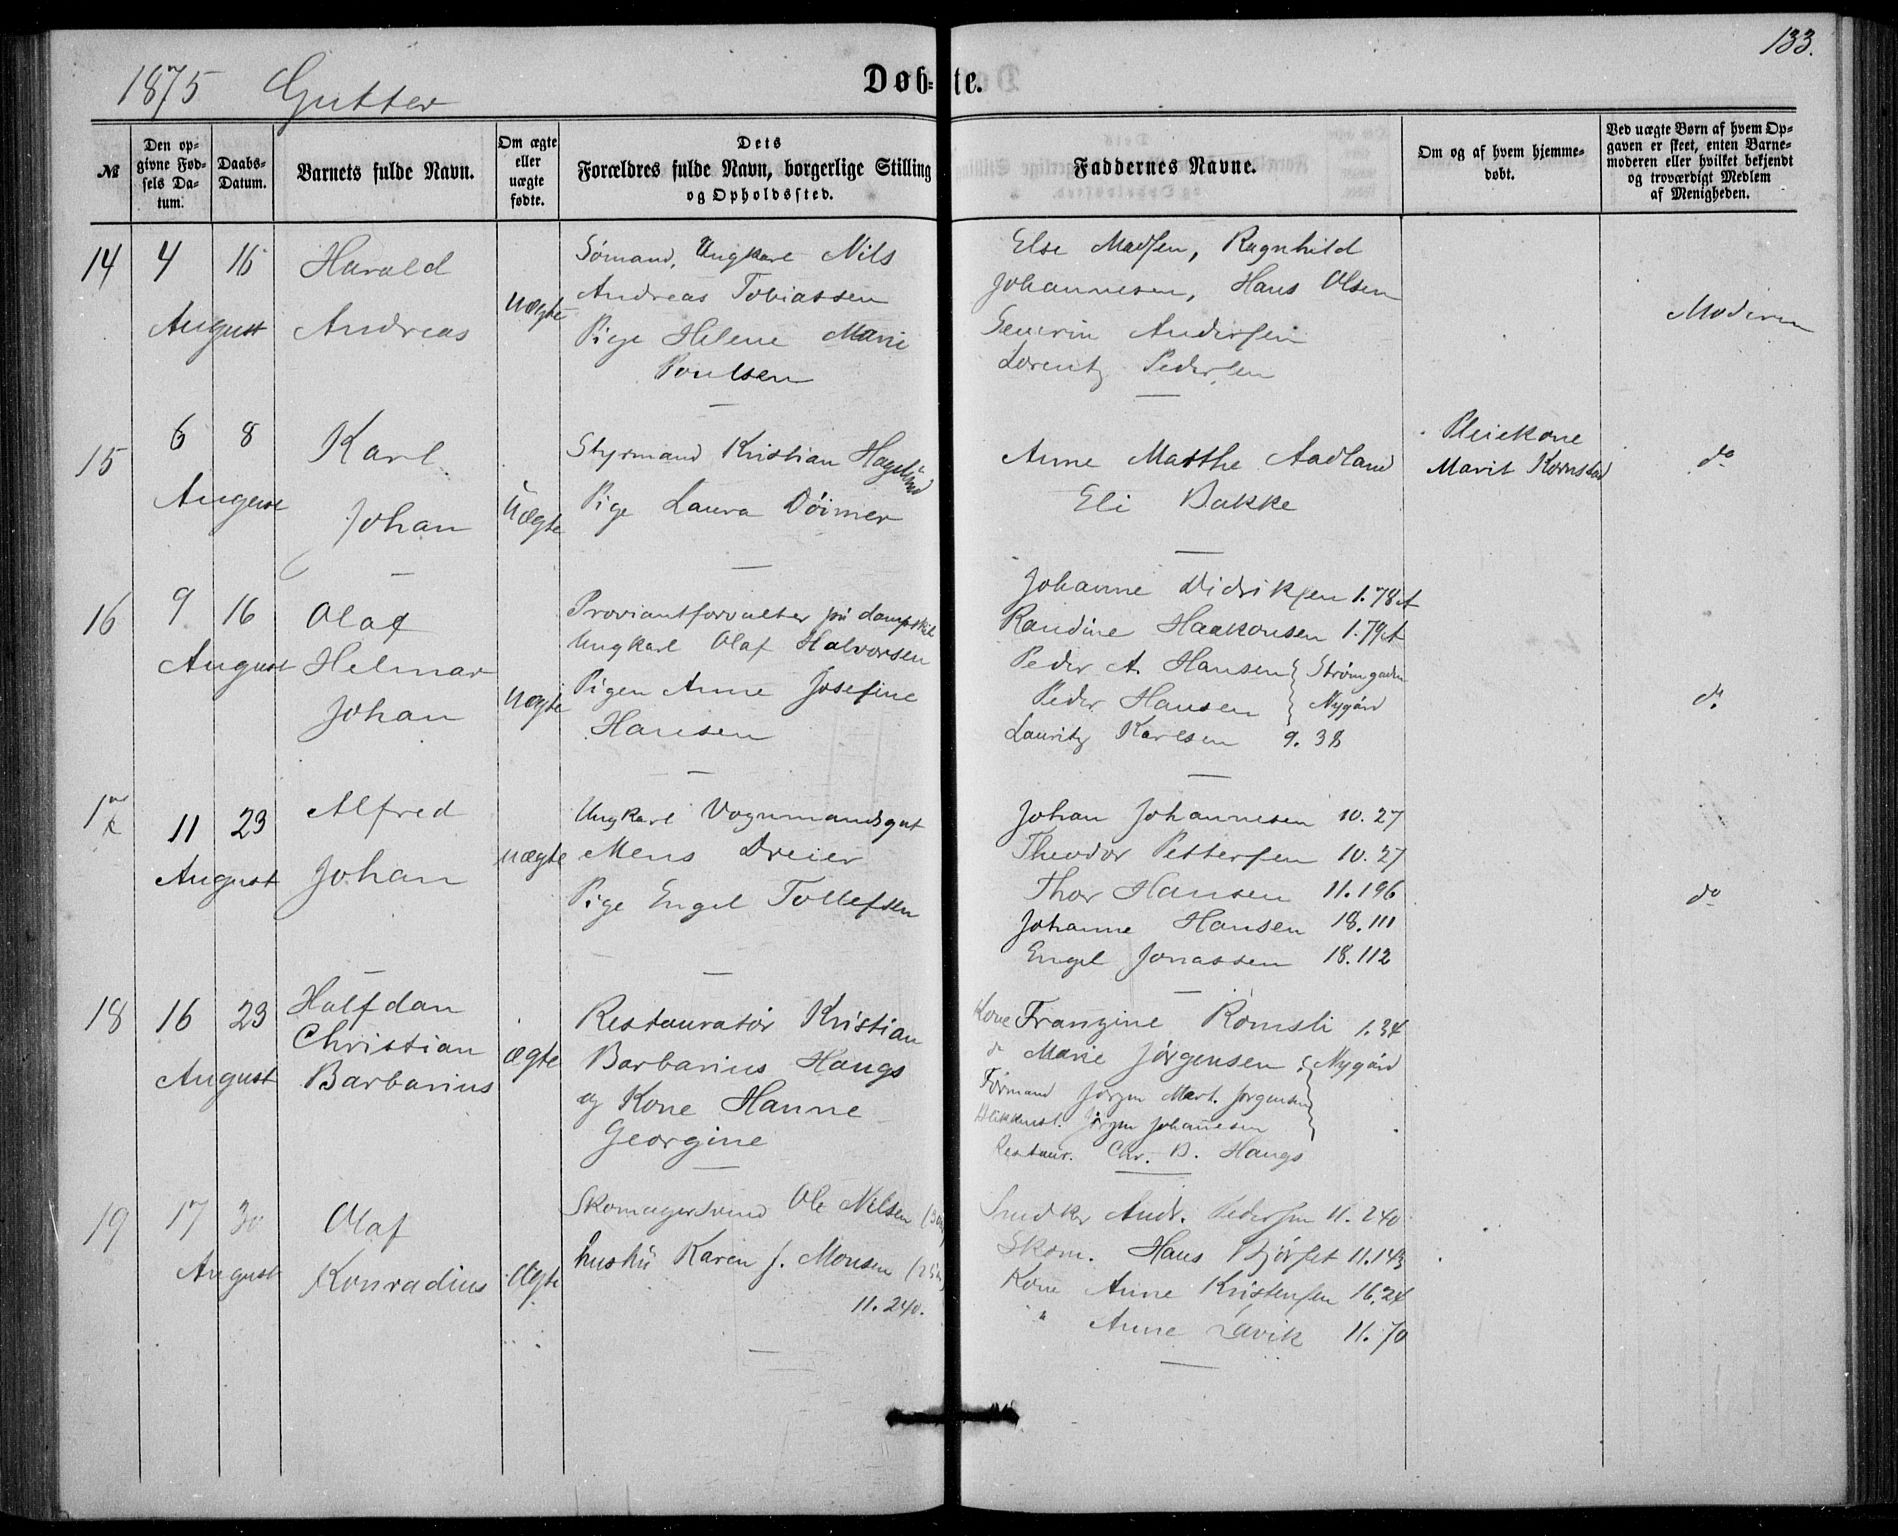 133.
1875 Gutter
Døb-te.
№
Den op-
givne Fød-
sels Da-
tum.
Daabs-
Datum.
Barnets fulde Navn.
Om ægte
eller
uægte
fødte.
Dets
Forældres fulde Navn, borgerlige Stilling
og Opholdssted.
Faddernes Navne.
Om og af hvem hjemme-
døbt.
Ved uægte Børn af hvem Op-
gaven er skeet, enten Barne-
moderen eller hvilket bekjendt
og troværdigt Medlem
af Menigheden.
14 4 16
August
Harald
Andreas
Uægte
Sømand, Ungkarl Nils
Andreas Tobiassen
Pige Helene Marie
Poulsen
Else Madsen, Ragnhild
Johannesen, Hans Olsen
Severin Andersen
Lorentz Pedersen
Moderen
15 6 8
August
Karl
Johan
Uægte
Styrmand Kristian Hagelund
Pige Laura Döimer
Anne Marthe Aadland
Eli Bakke
Pleiekone
Marit Kornstad
do
16 9 16
August
Olaf
Helmar
Johan
Uægte
Proviantforvalter på dampskib
Ungkarl Olaf Halvorsen
Pigen Anne Josefine
Hansen
Johanne Didriksen 1.78A
Randine Haakonsen 1.79A
Peder A. Hansen } Strømgaden
Peder Hansen } Nygård
Lauritz Karlsen 9.38
do
17 11 23
August
Alfred
Johan
uægte
Ungkarl Vognmandsgut
Mens Dreier
Pige Engel Tollefsen
Johan Johannesen 10.27
Theodor Pettersen 10.27
Thor Hansen 11.196
Johanne Hansen 18.111
Engel Jonassen 18.112
do
18 16 23
August
Halfdan
Christian
Barbarius
ægte
Restauratör Kristian
Barbarius Haugs
og Kone Hanne
Georgine
Kone Franzine Romsli 1.34
do Marie Jørgensen } Nygård
Formand Jörgen Mart. Jørgensen
Blikkensl. Jörgen Johannesen
Restaur. Chr. B. Haugs
19 17 30
August
Olaf
Konradius
Ægte
Skomagersvend Ole Nilsen
hustru Karen J. Monsen
11.240.
Snedker Andr. Pedersen 11.240
Skom. Hans Bjørset 11.143
Kone Anne Kristensen 16.24
" Anne Lavik 11.70